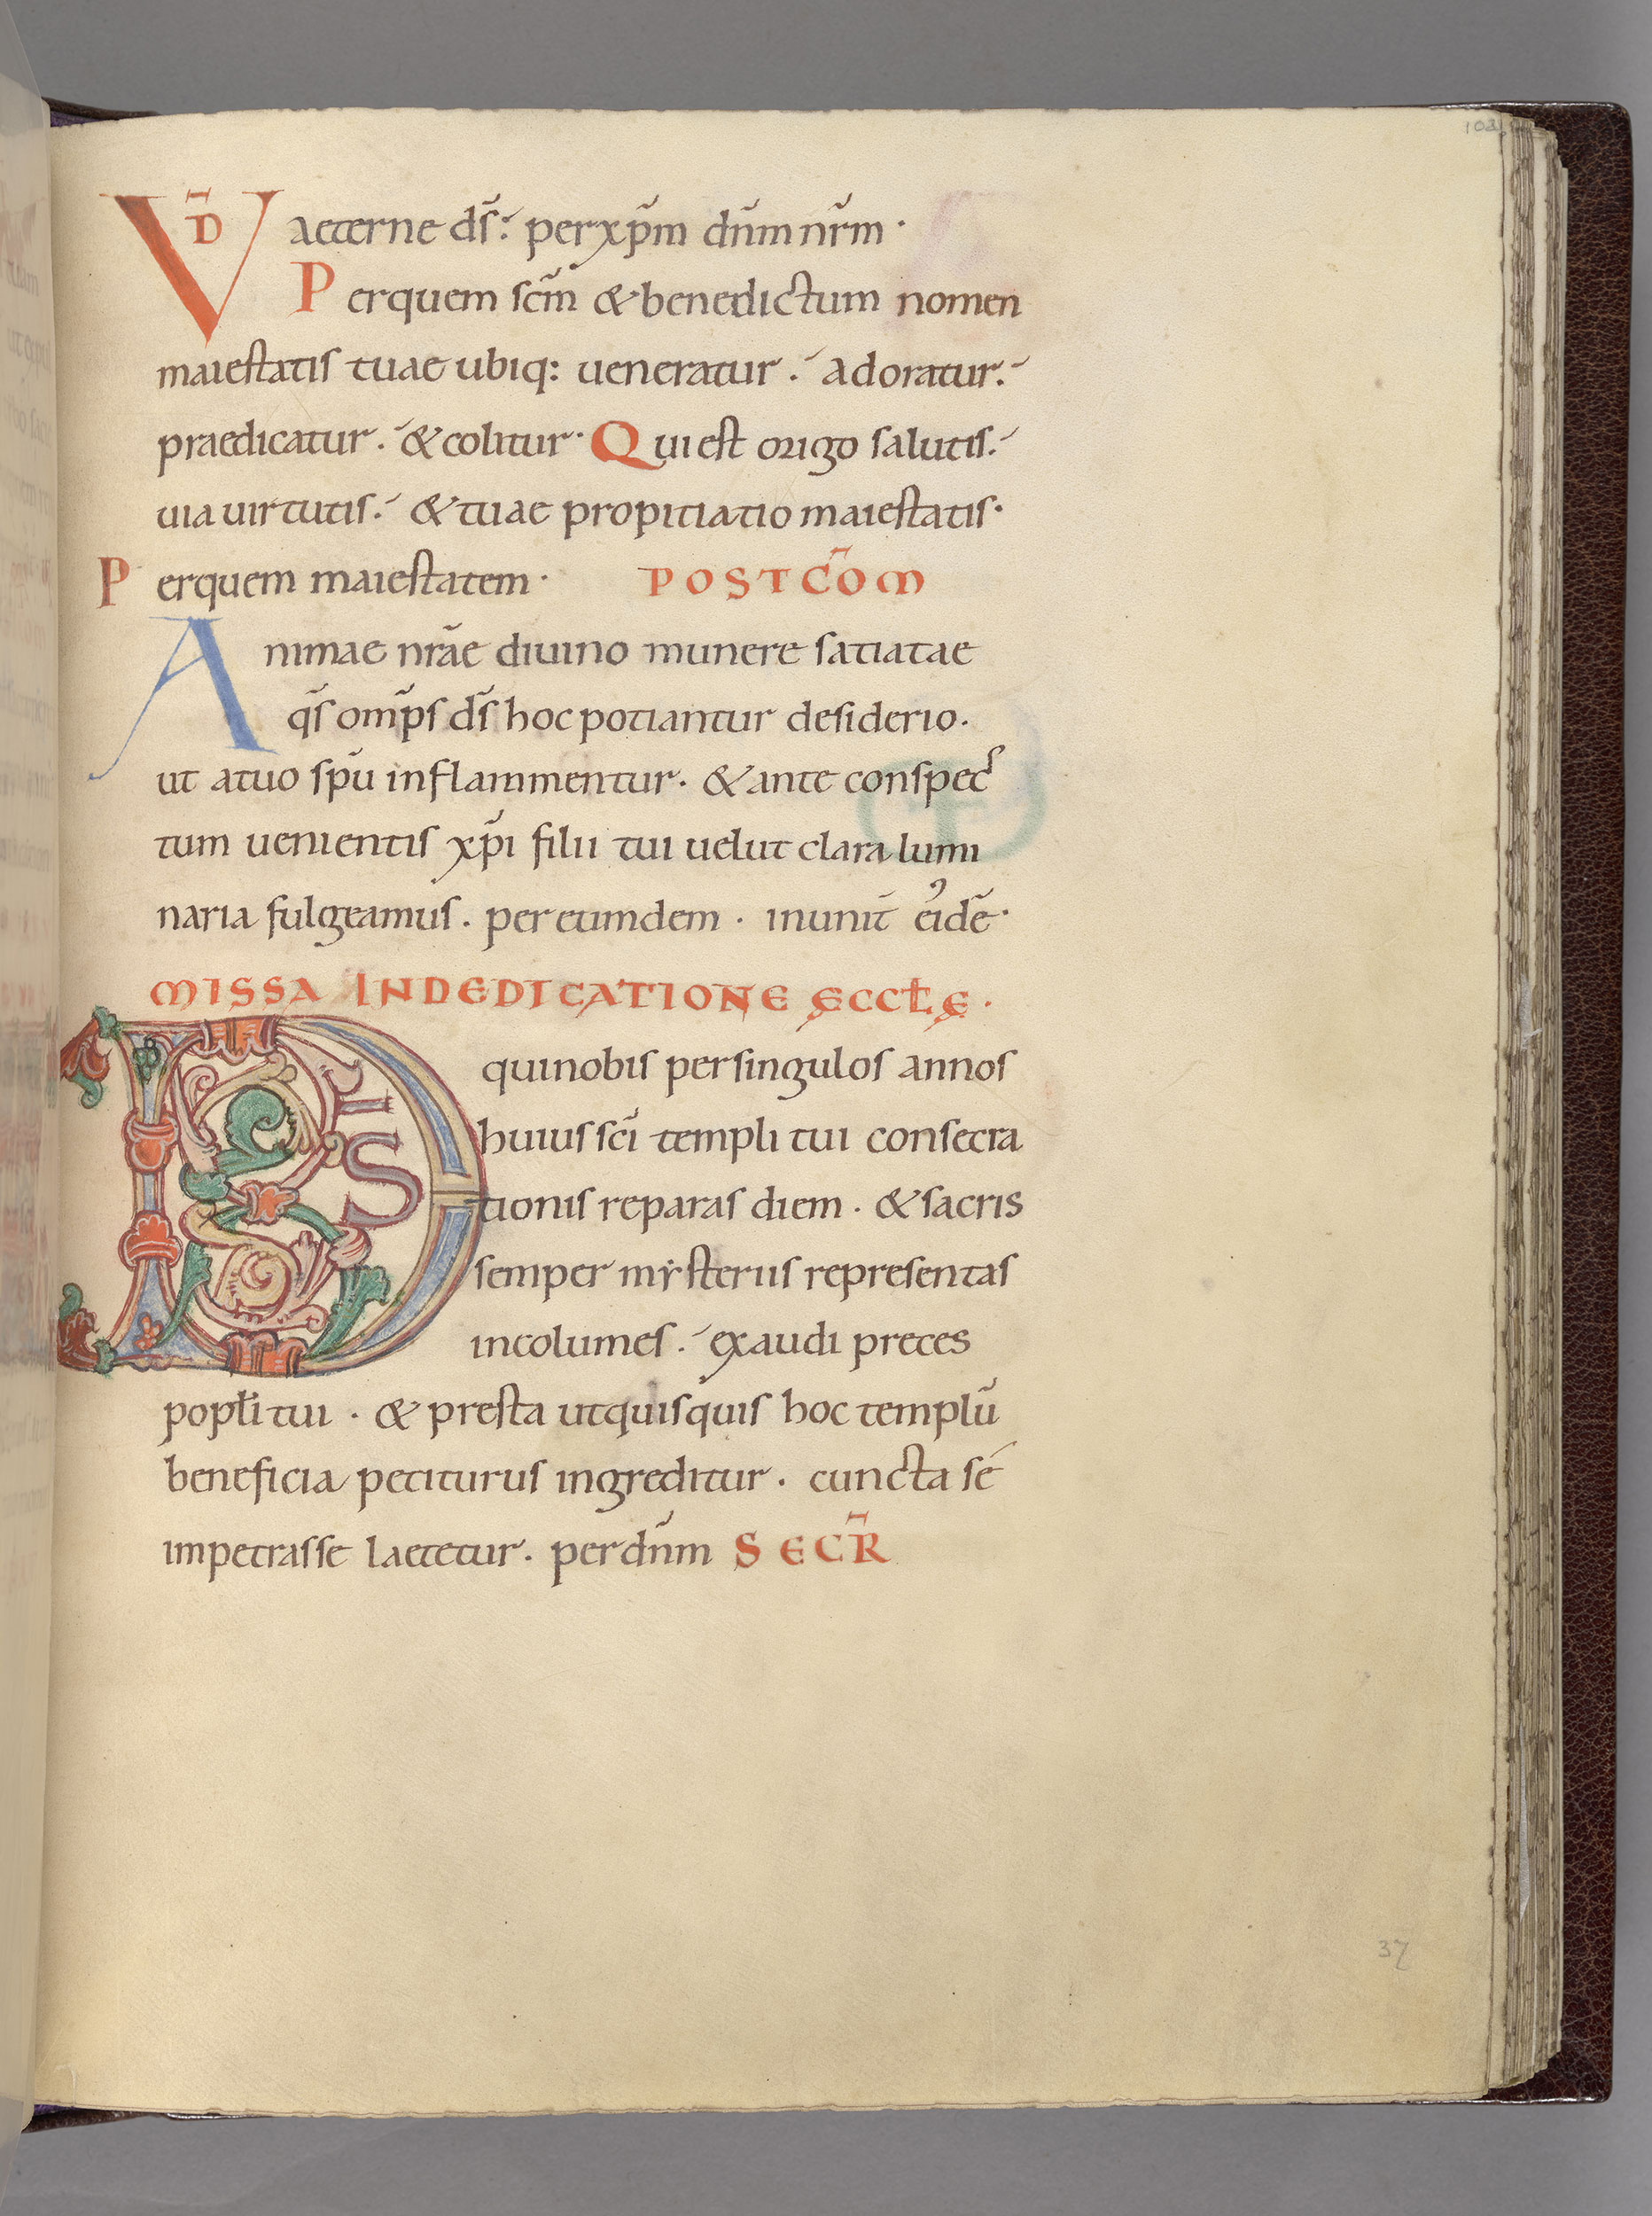 103
VD̄ aeterne ds̄: per xp̄m dn̄m nr̄m·
Per quem sc̄m & benedictum nomen
maiestatis tuae ubiq: ueneratur. adoratur.
praedicatur. & colitur· Qui est origo salutis.
uia uirtutis. & tuae propitiatio maiestatis·
Per quem maiestatem· POST CŌM
Animae nrāe diuino munere satiatae
qs̄ omp̄s ds̄ hoc potiantur desiderio.
ut a tuo spū inflammentur. & ante conspec
tum uenientis xp̄i filii tui uelut clara lumi
naria fulgeamus. per eumdem · in unit̄ ei'dē·
MISSA IN DEDICATIONE ĘCCŁĘ.
DES qui nobis per singulos annos
huius sc̄i templi tui consecra
tionis reparas diem. & sacris
semper mẏsteriis representas
incolumes. exaudi preces
popłi tui · & presta ut quisquis hoc templū
beneficia petiturus ingreditur. cuncta sé
impetrasse laetetur. per dn̄m SECR̄
37